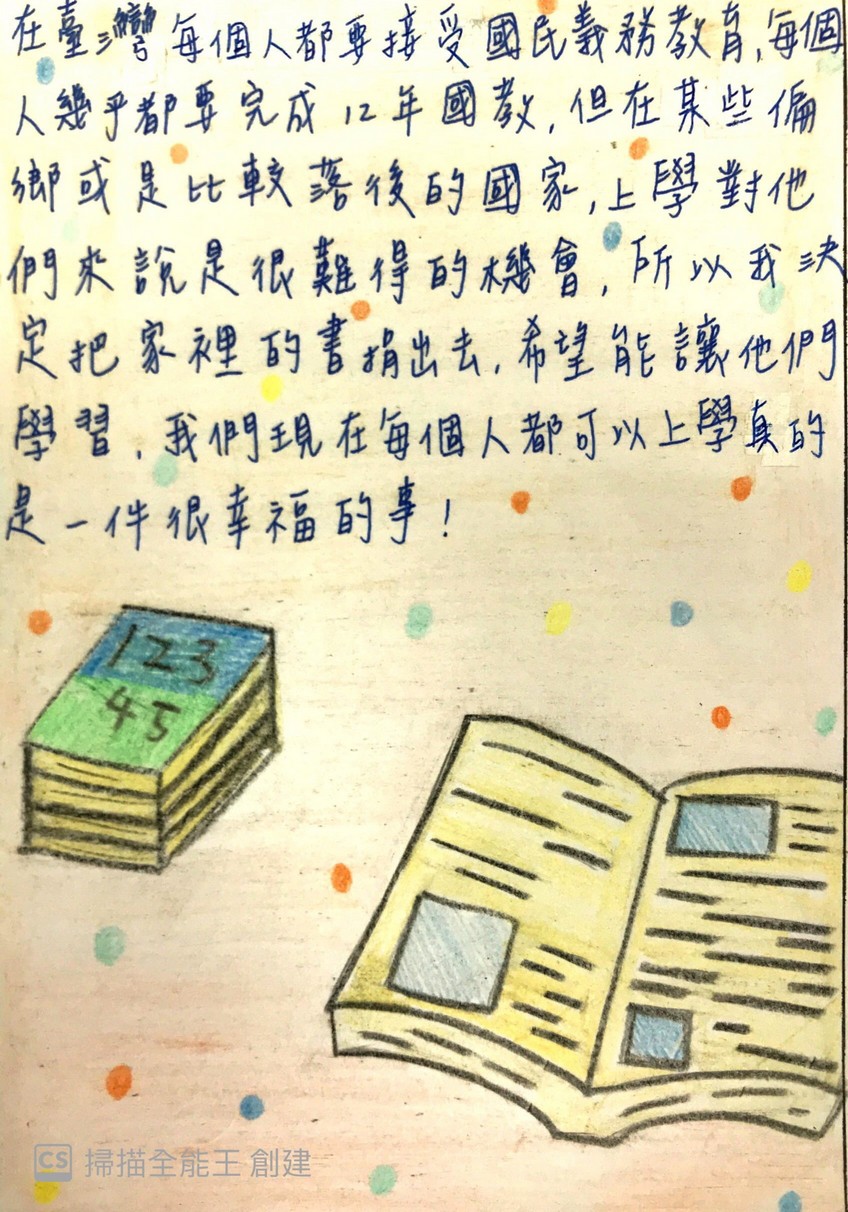 在臺灣每個人都要接受國民義務教育,每個
人幾乎都要完成12年國教,但在某些偏
鄉或是比較落後的國家,上學對他
們來說是很難得的機會,所以我決
定把家裡的書捐出去,希望能讓他們
學習,我們現在每個人都可以上學真的
是一件很幸福的事!
123
45
CS 掃描全能王 創建